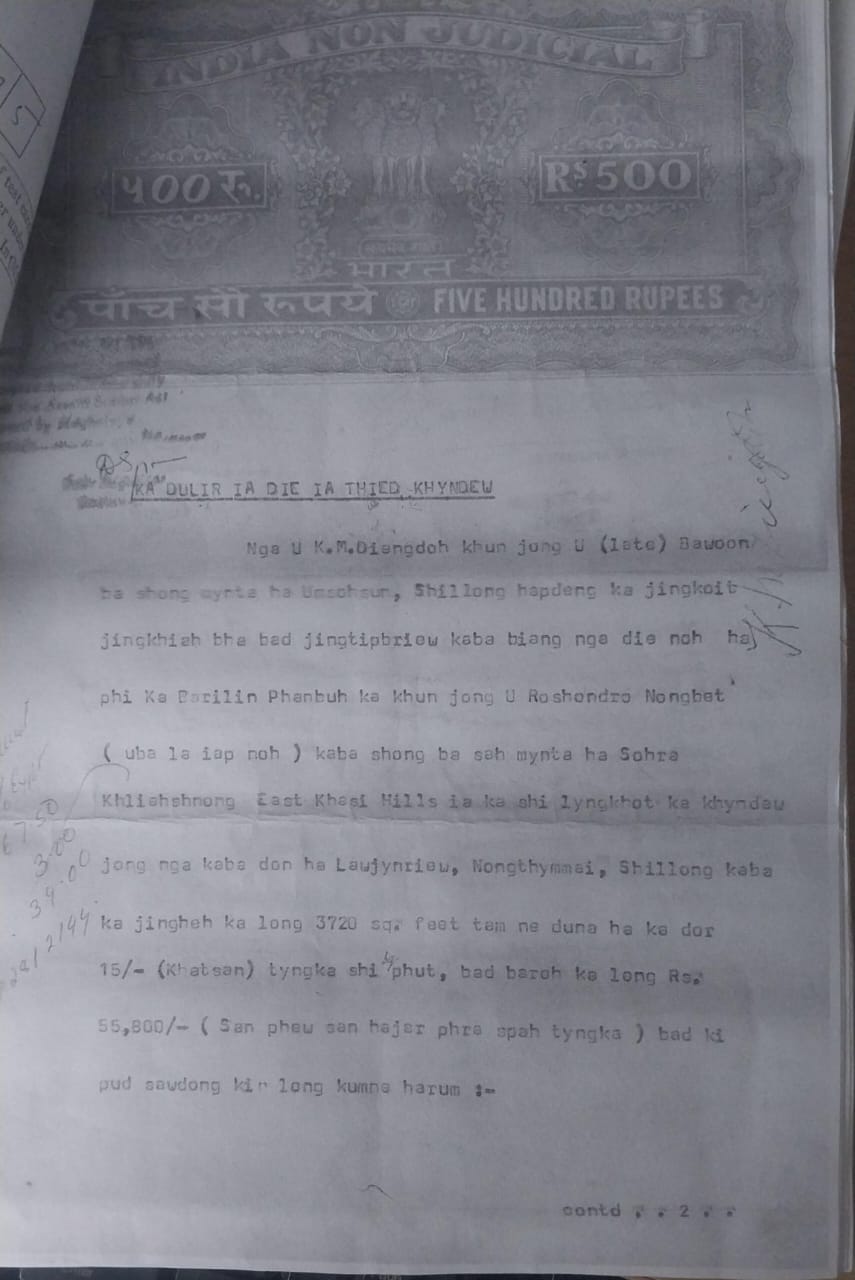 INDIA NON JUDICIAL
५०० रु.
Rs 500
भारत
पाँच सौ रूपये FIVE HUNDRED RUPEES
KA DULIR IA DIE IA THIED KHYNDEW
Nga U K.M.Diengdoh khun jong U (late) Bawoon
ba shong mynta ha Umsohsun, Shillong hapdeng ka jingkoit
jingkhiah bha bad jingtipbriew kaba biang nga die noh ha
phi Ka Barilin Phanbuh ka khun jong U Roshondro Nongbet
( uba la iap noh ) kaba shong ba sah mynta ha Sohra
Khliehshnong East Khasi Hills ia ka shi lyngkhot ka khyndew
jong nga kaba don ha Lawjynriew, Nongthymmai, Shillong kaba
ka jingheh ka long 3720 sq. feet tam ne duna ha ka dor
15/- (Khatsan) tyngka shi phut, bad baroh ka long Rs.
55,800/- ( San phew san hajar phra spah tyngka ) bad ki
pud sawdong kin long kumne harum :-
contd . . 2 . .